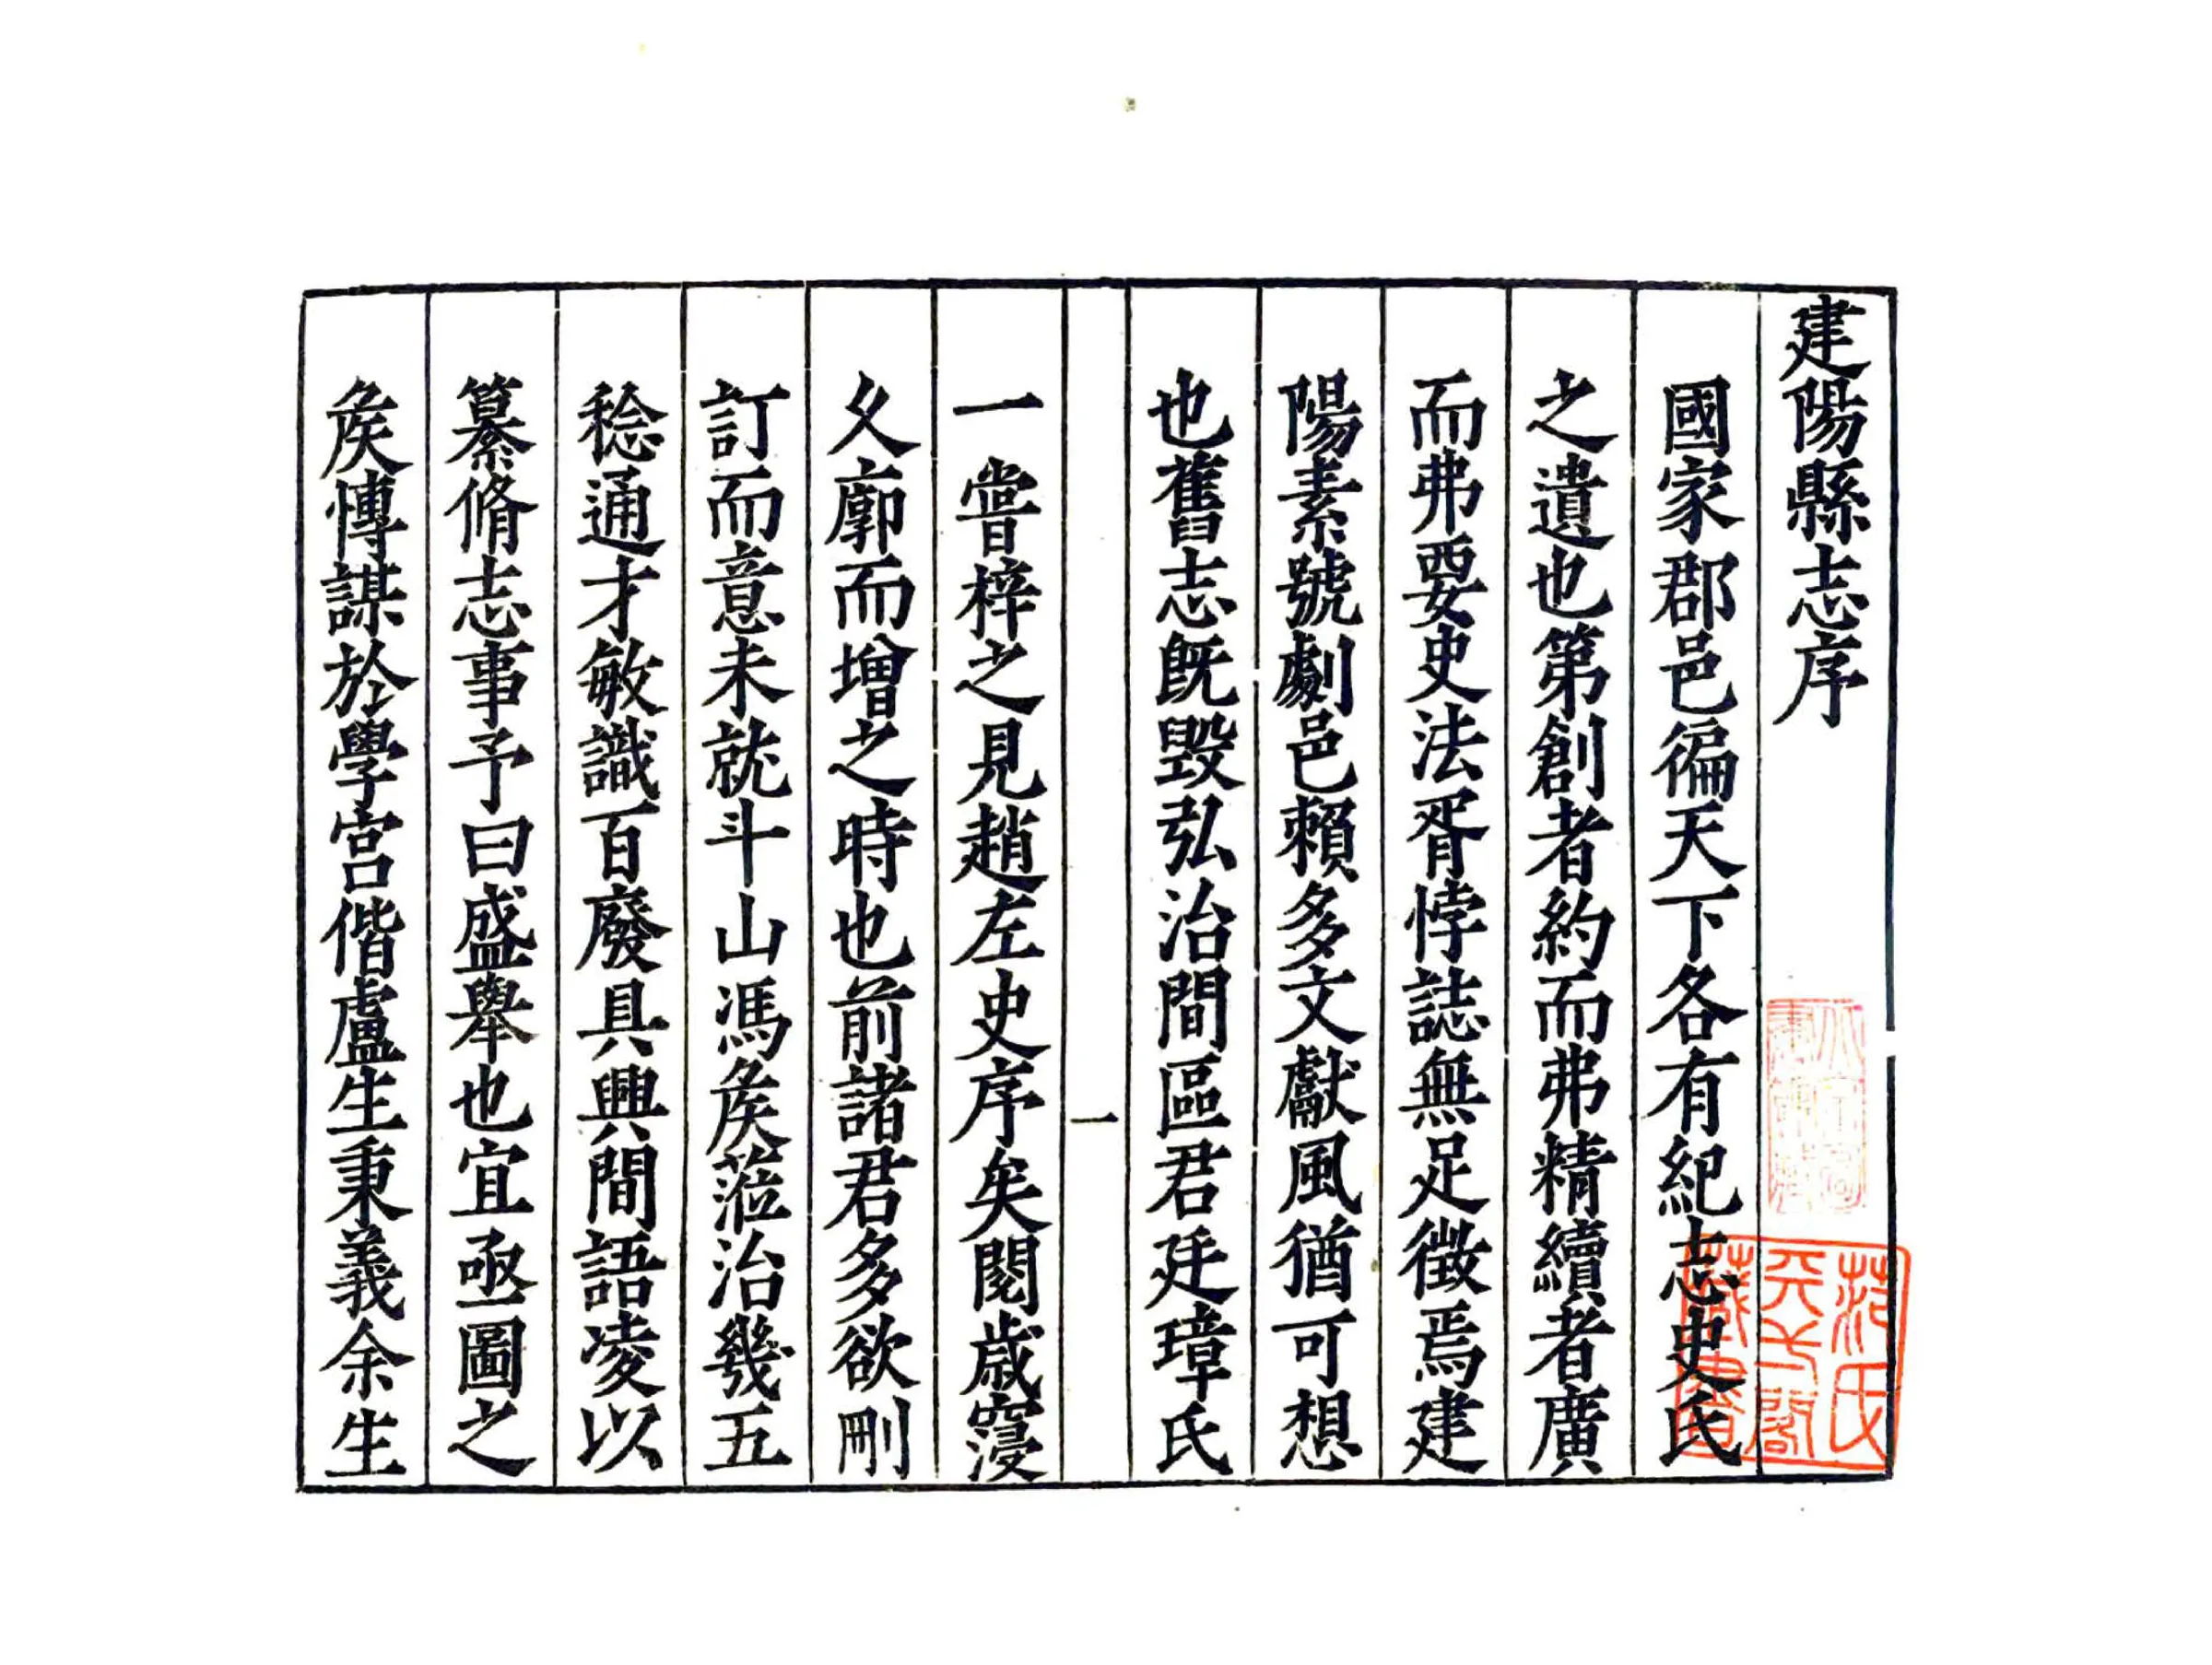 建陽縣志序
國家郡邑徧天下各有紀志史氏
之遺也第創者約而弗精續者廣
而弗要史法胥悖誌無足徵焉建
陽素號劇邑賴多文獻風猶可想
也舊志旣毀弘治間區君廷璋氏
一
一嘗梓之見趙左史序矣閱歲寖
乆廓而增之時也前諸君多欲刪
訂而意未就斗山馮矦蒞治幾五
稔通才敏識百廢具興間語凌以
纂脩志事予曰盛舉也宜亟圖之
矦慱謀於學宫偕盧生秉義余生
范氏
天一閣
藏書